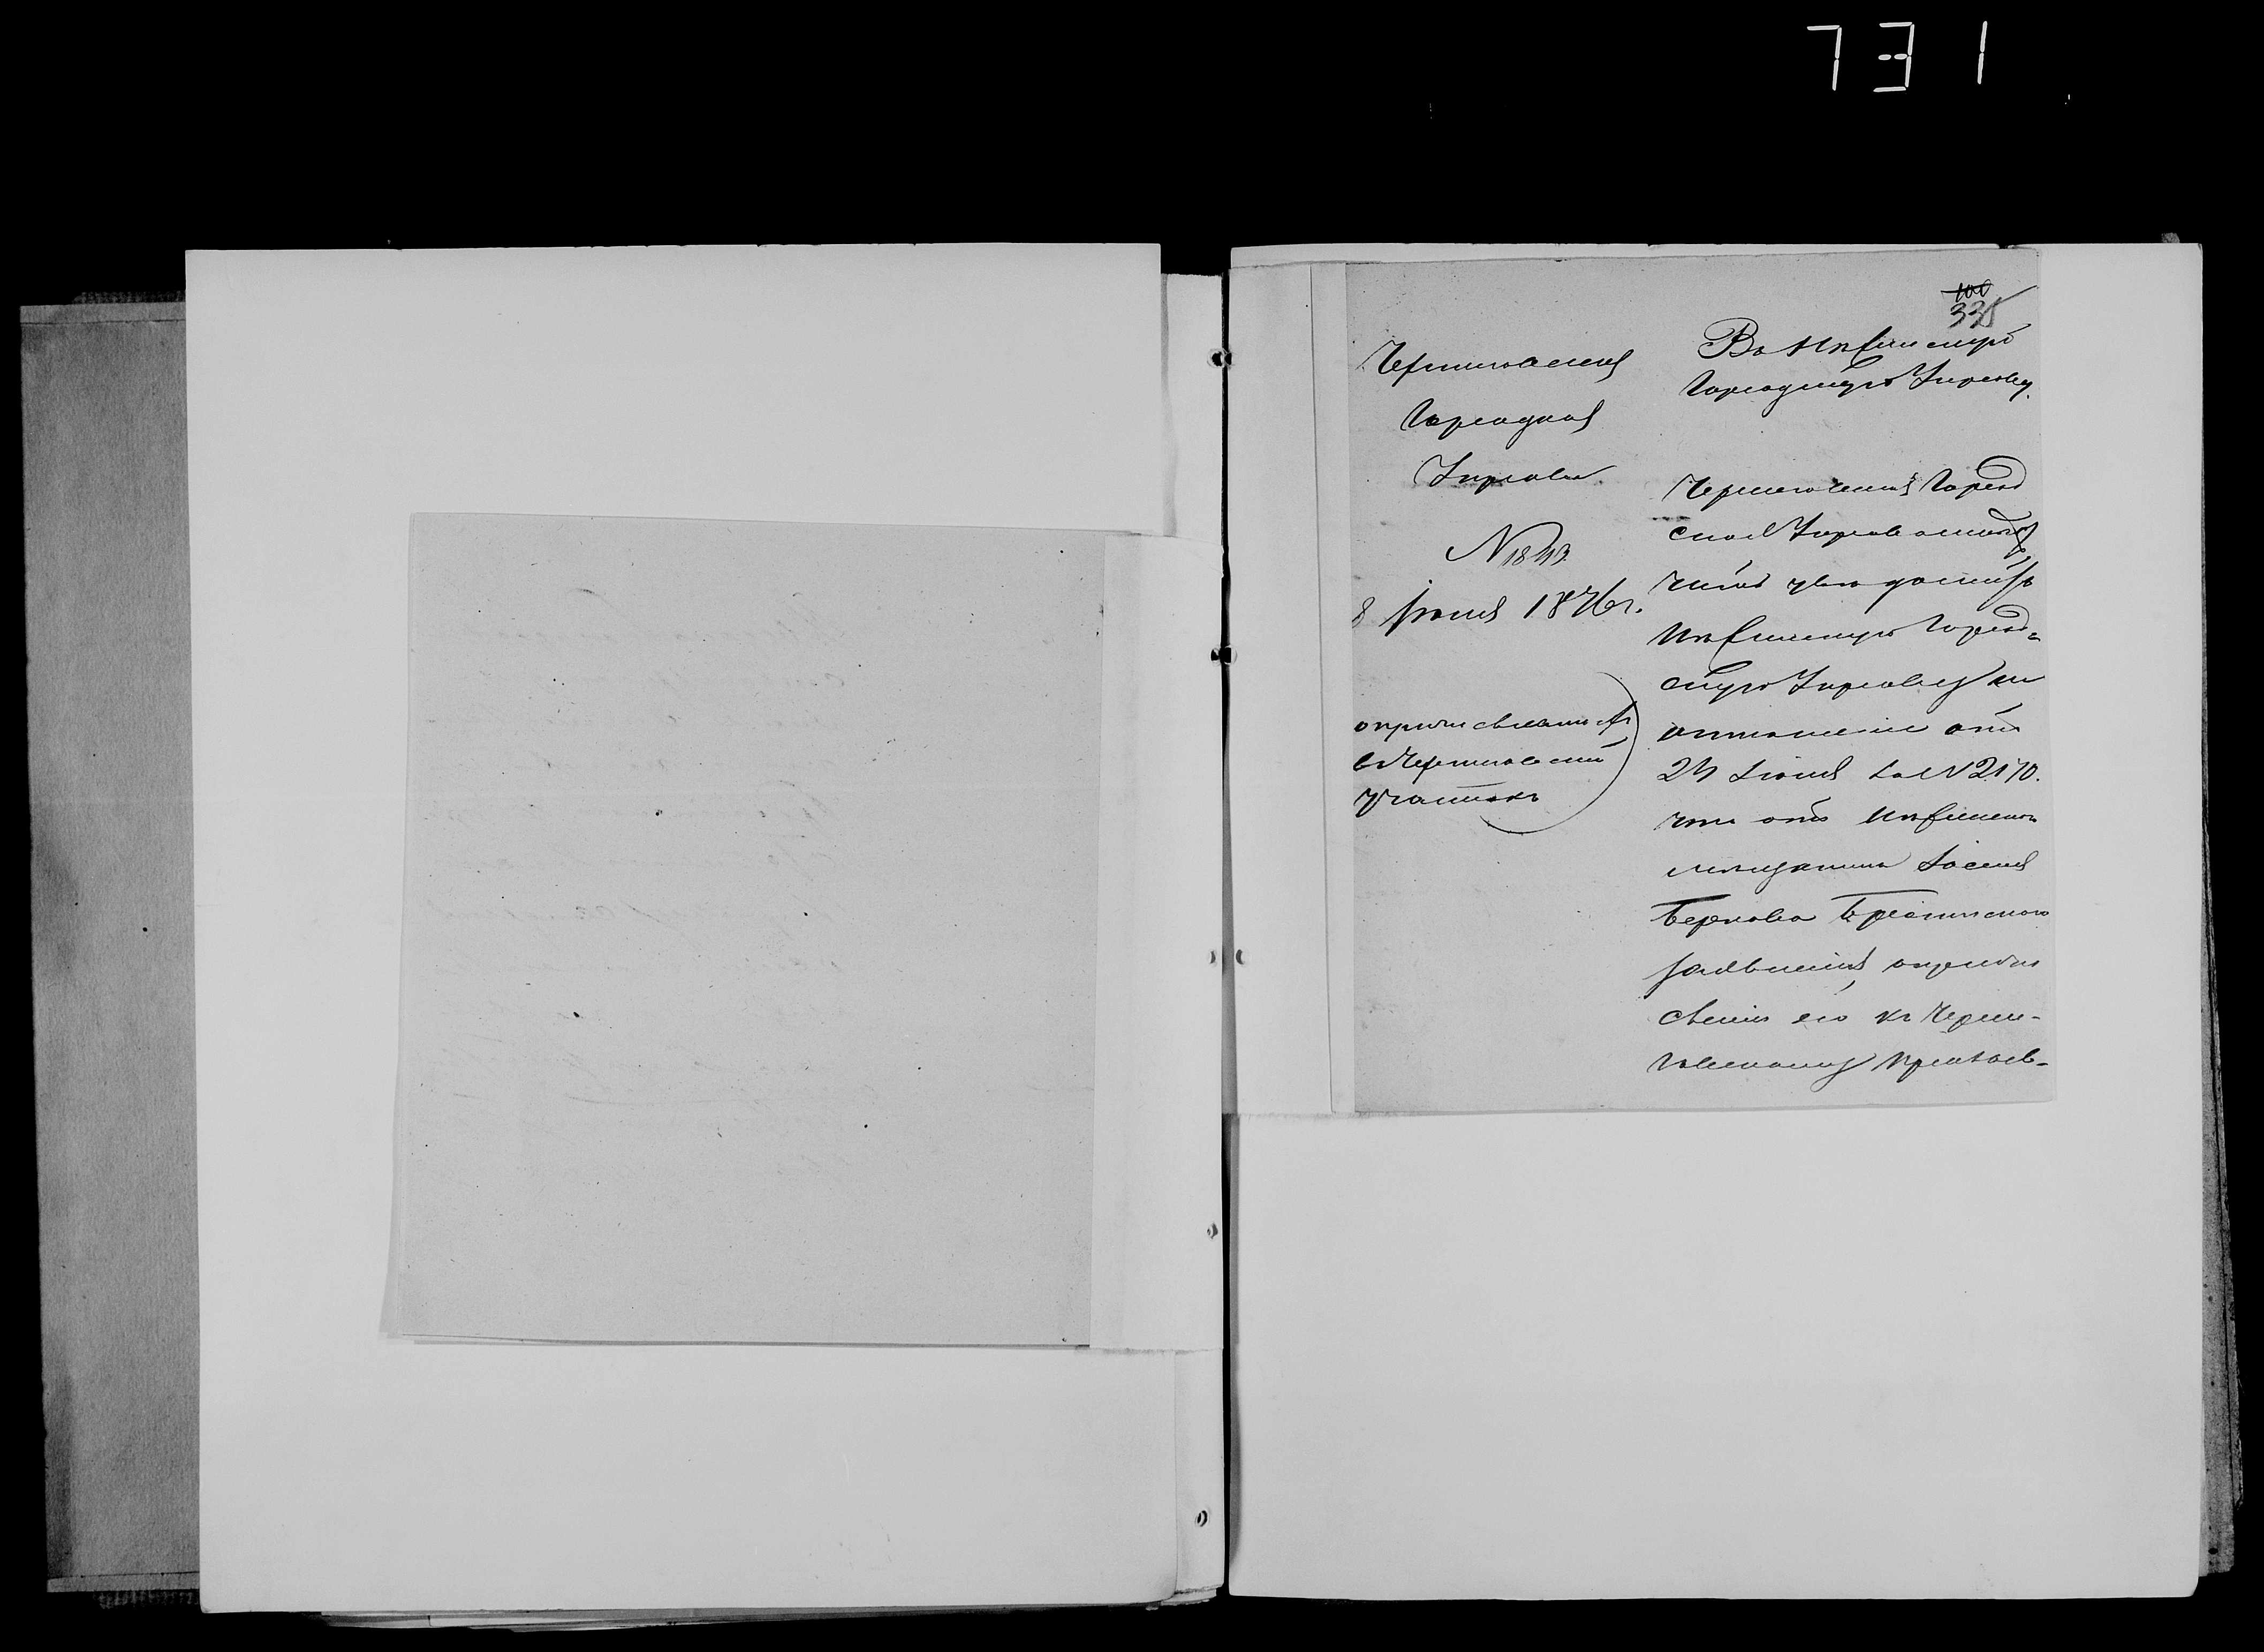 731
335
Черниговская
Городская
Управа
N 1843
8 Iюля 1876 г.
о причисленiи его
въ Черниговскiй
участокъ
Въ Нѣжинскую
Городскую Управу.
Черниговская Город
ская Управа
честь увѣдомить
Нѣжинскую Город=
скую Управу на
отношенiе отъ
24 Iюня за N 2170.
что отъ Нѣжинскаго
мѣщанина
Беркова
заявленiя, о причи
сленiи его къ Черни-
говскому призыв-